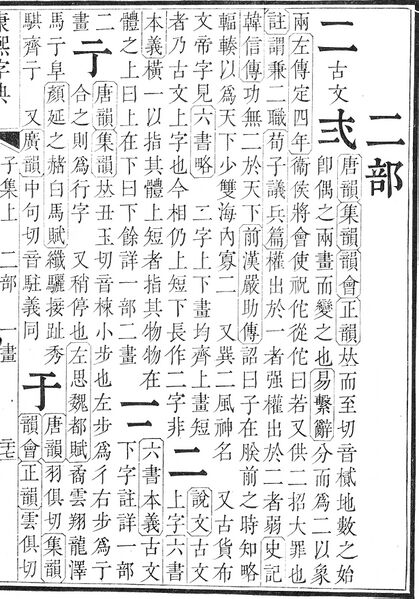 二部
二 古文 弍
唐韻集韻韻會正韻𠀤而至切音樲地數之始
卽偶之兩畫而變之也易繫辭分而爲二以象
兩左傳定四年衛侯將會使祝佗從佗曰若又供二招大罪也
註謂兼二職荀子議兵篇權出於一者强權出於二者弱史記
韓信傳功無二於天下前漢嚴助傳詔曰子在朕前之時知略
輻輳以爲天下少雙海內寡二 又巽二風神名 又古貨布
文帝字見六書略 二字上下畫均齊上畫短
者乃古文上字也今相仍上短下長作二字非
𠄞
說文古文
上字六書
本義橫一以指其體上短者指其物物在
體之上曰上在下曰下餘詳一部二畫
𠄟
六書本義古文
下字註詳一部
二畫
亍
唐韻集韻𠀤丑玉切音楝小步也左步爲彳右步爲亍
合之則爲行字 又稍停也左思魏都賦矞雲翔龍澤
馬亍阜顏延之赭白馬賦纖驪接趾秀
騏齊亍 又廣韻中句切音駐義同
于
唐韻羽俱切集韻
韻會正韻雲俱切
康熙字典 子集上 二部 一畫